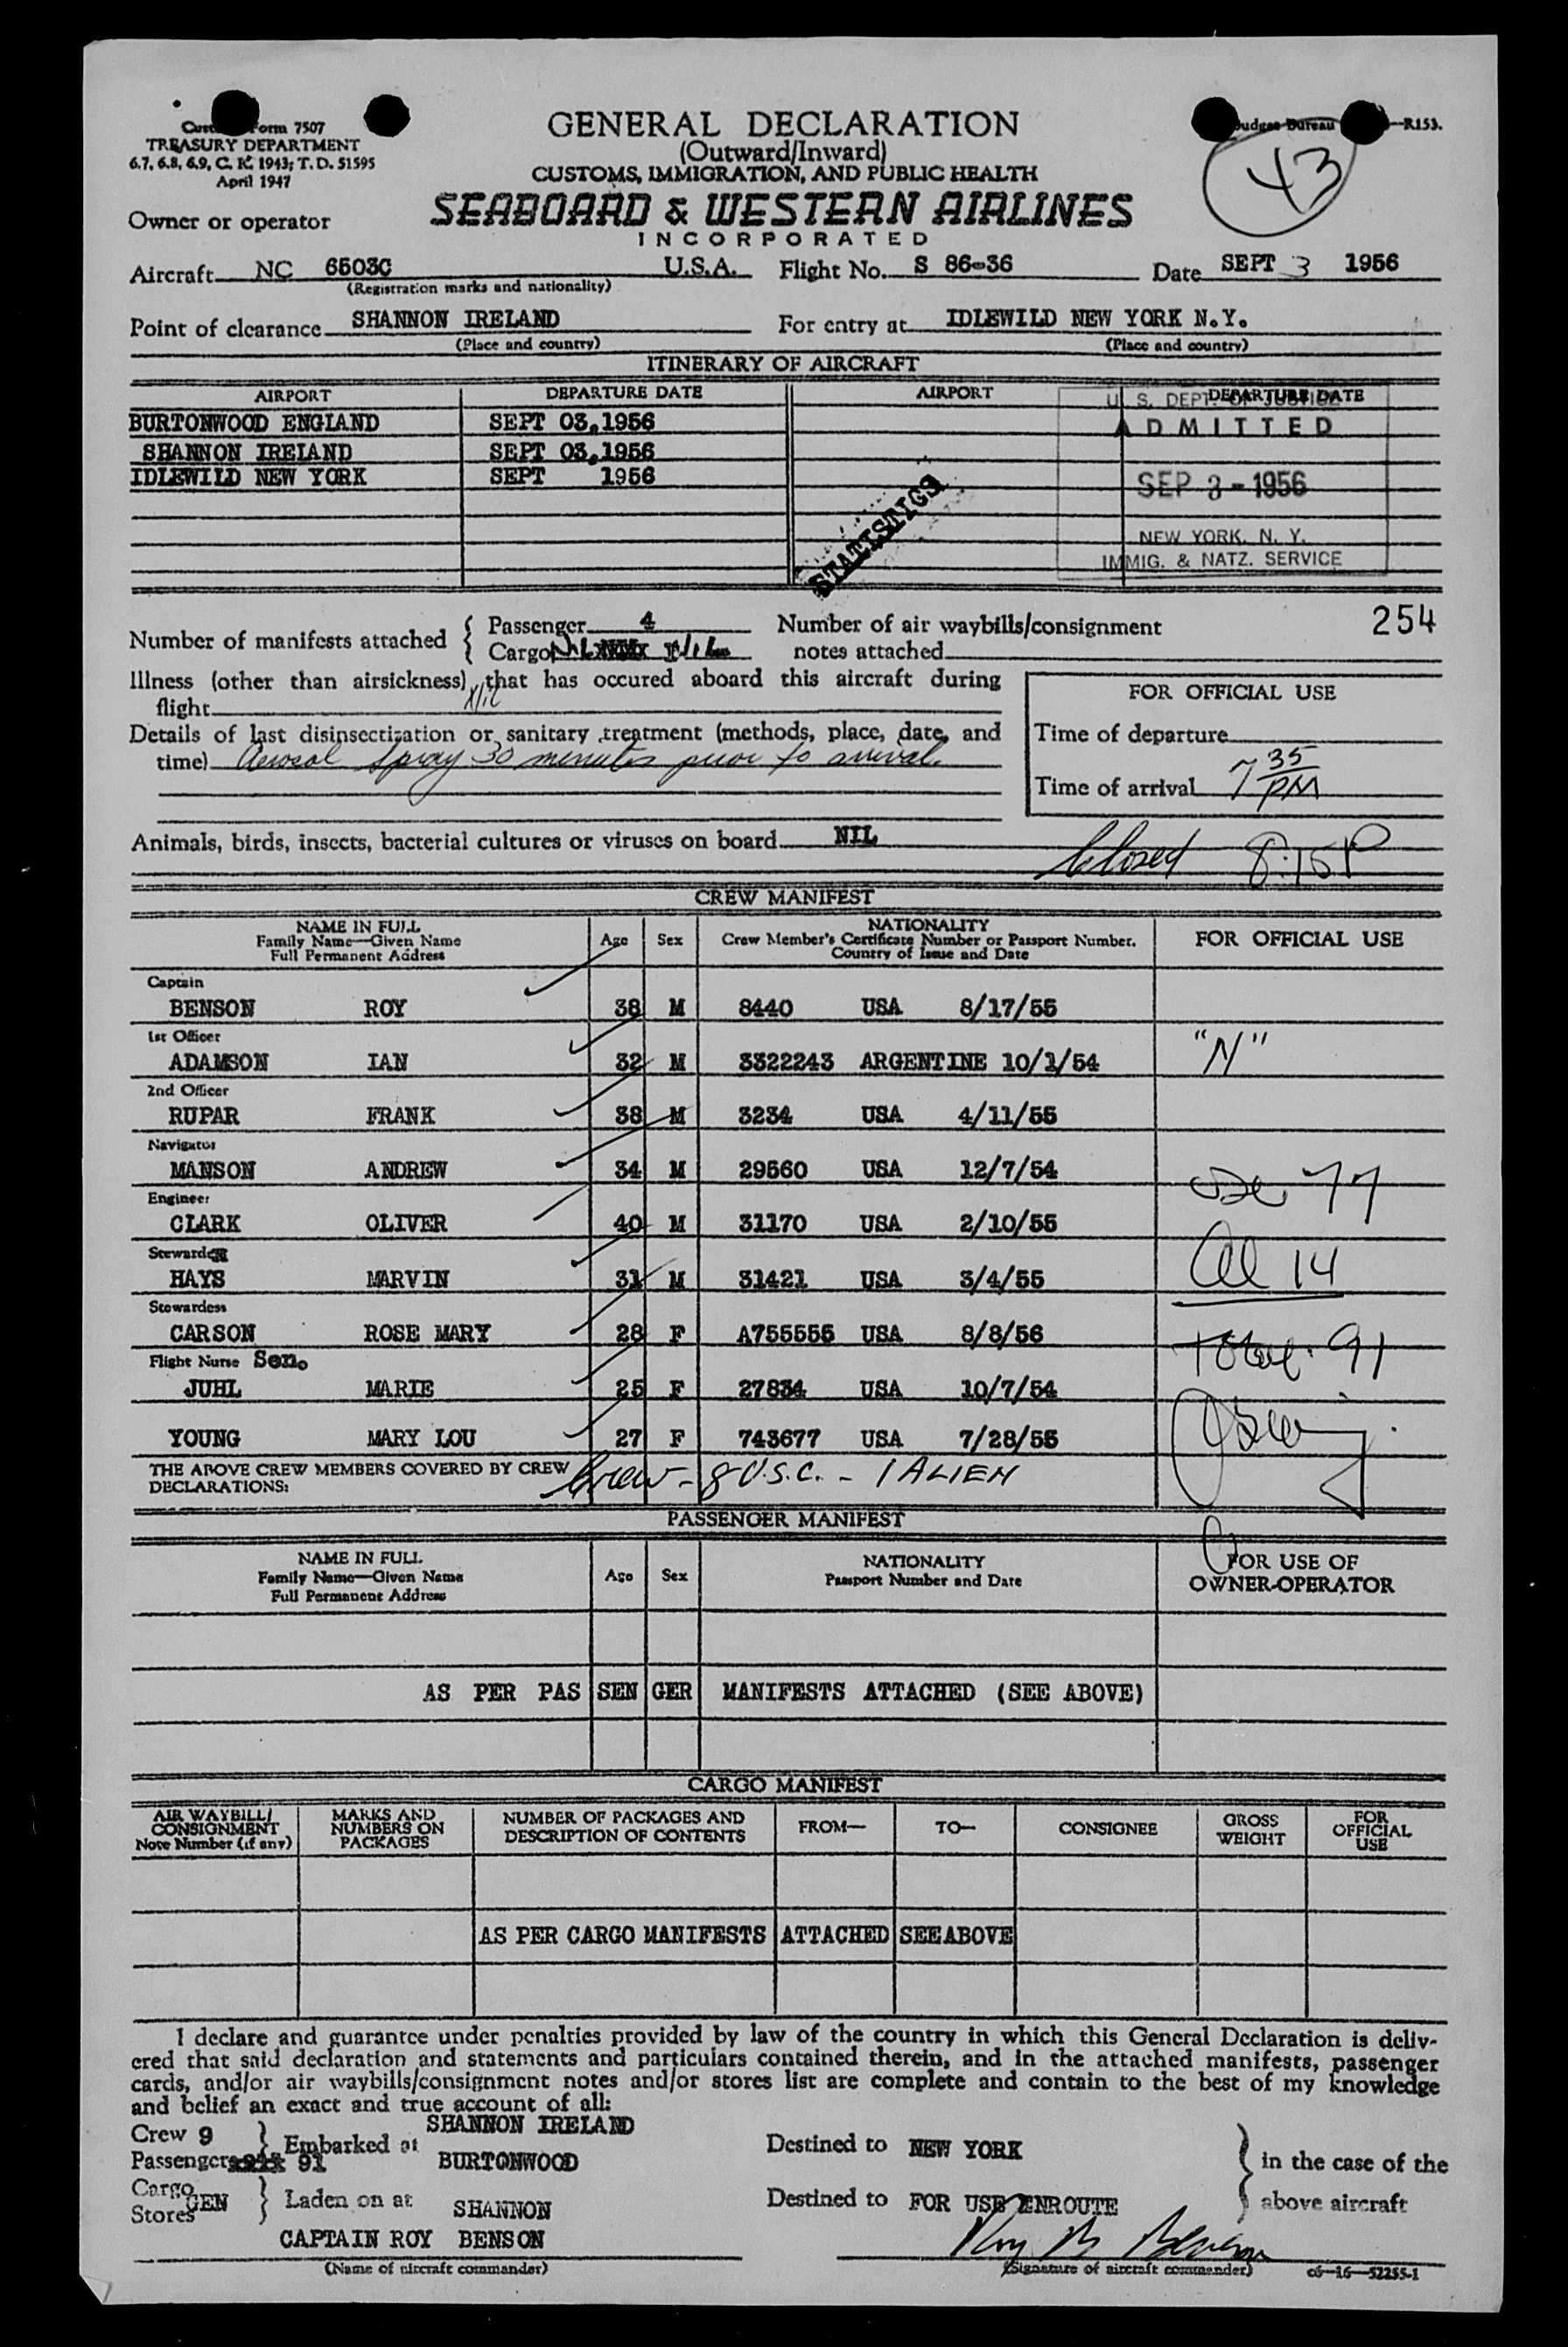 Form 7507
TREASURY DEPARTMENT
6.7, 6.8, 6.9, C. R. 1943; T. D. 51595
April 1947
GENERAL DECLARATION
(Outward/Inward)
CUSTOMS, IMMIGRATION, AND PUBLIC HEALTH
Budget Bureau —R153.
43
Owner or operator
SEABOARD & WESTERN AIRLINES
INCORPORATED
Aircraft NC 6503C U.S.A. Flight No. S 86-36 Date SEPT 3 1956
(Registration marks and nationality)
Point of clearance SHANNON IRELAND For entry at IDLEWILD NEW YORK N.Y.
(Place and country) (Place and country)
ITINERARY OF AIRCRAFT
AIRPORT DEPARTURE DATE AIRPORT DEPARTURE DATE
BURTONWOOD ENGLAND SEPT 03,1956
SHANNON IRELAND SEPT 03,1956
IDLEWILD NEW YORK SEPT 1956
U. S. DEPT. OF JUSTICE
ADMITTED
SEP 3 - 1956
NEW YORK, N. Y.
IMMIG. & NATZ. SERVICE
STATISTICS
254
Number of manifests attached { Passenger 4 Number of air waybills/consignment
Cargo Nil notes attached
Illness (other than airsickness) that has occured aboard this aircraft during
flight Nil
Details of last disinsectization or sanitary treatment (methods, place, date, and
time) Aerosol Spray 30 minutes prior to arrival.
FOR OFFICIAL USE
Time of departure
Time of arrival 7 35 PM
Animals, birds, insects, bacterial cultures or viruses on board NIL
Closed 8:15P
CREW MANIFEST
NAME IN FULL
Family Name—Given Name
Full Permanent Address
Age Sex
NATIONALITY
Crew Member's Certificate Number or Passport Number.
Country of Issue and Date
FOR OFFICIAL USE
Captain
BENSON ROY 38 M 8440 USA 8/17/55
1st Officer
ADAMSON IAN 32 M 3322243 ARGENTINE 10/1/54 "N"
2nd Officer
RUPAR FRANK 38 M 3234 USA 4/11/55
Navigator
MANSON ANDREW 34 M 29560 USA 12/7/54
77
Engineer
CLARK OLIVER 40 M 31170 USA 2/10/55
Steward
HAYS MARVIN 31 M 31421 USA 3/4/55
14
Stewardess
CARSON ROSE MARY 28 F A755555 USA 8/8/56
Total: 91
Flight Nurse Sen.
JUHL MARIE 25 F 27834 USA 10/7/54
YOUNG MARY LOU 27 F 743677 USA 7/28/55
THE ABOVE CREW MEMBERS COVERED BY CREW
DECLARATIONS:
Crew - 8 U.S.C. - 1 ALIEN
PASSENGER MANIFEST
NAME IN FULL
Family Name—Given Name
Full Permanent Address
Age Sex
NATIONALITY
Passport Number and Date
FOR USE OF
OWNER-OPERATOR
AS PER PAS SEN GER MANIFESTS ATTACHED (SEE ABOVE)
CARGO MANIFEST
AIR WAYBILL/
CONSIGNMENT
Note Number (if any)
MARKS AND
NUMBERS ON
PACKAGES
NUMBER OF PACKAGES AND
DESCRIPTION OF CONTENTS
FROM— TO— CONSIGNEE
GROSS
WEIGHT
FOR
OFFICIAL
USE
AS PER CARGO MANIFESTS ATTACHED SEEABOVE
I declare and guarantee under penalties provided by law of the country in which this General Declaration is deliv-
ered that said declaration and statements and particulars contained therein, and in the attached manifests, passenger
cards, and/or air waybills/consignment notes and/or stores list are complete and contain to the best of my knowledge
and belief an exact and true account of all:
SHANNON IRELAND
Crew 9 } Embarked at Destined to NEW YORK } in the case of the
Passengers 91 BURTONWOOD
Cargo } Laden on at SHANNON Destined to FOR USE ENROUTE above aircraft
Stores GEN
CAPTAIN ROY BENSON Roy B Benson
(Name of aircraft commander) (Signature of aircraft commander) c6—16—52255-1